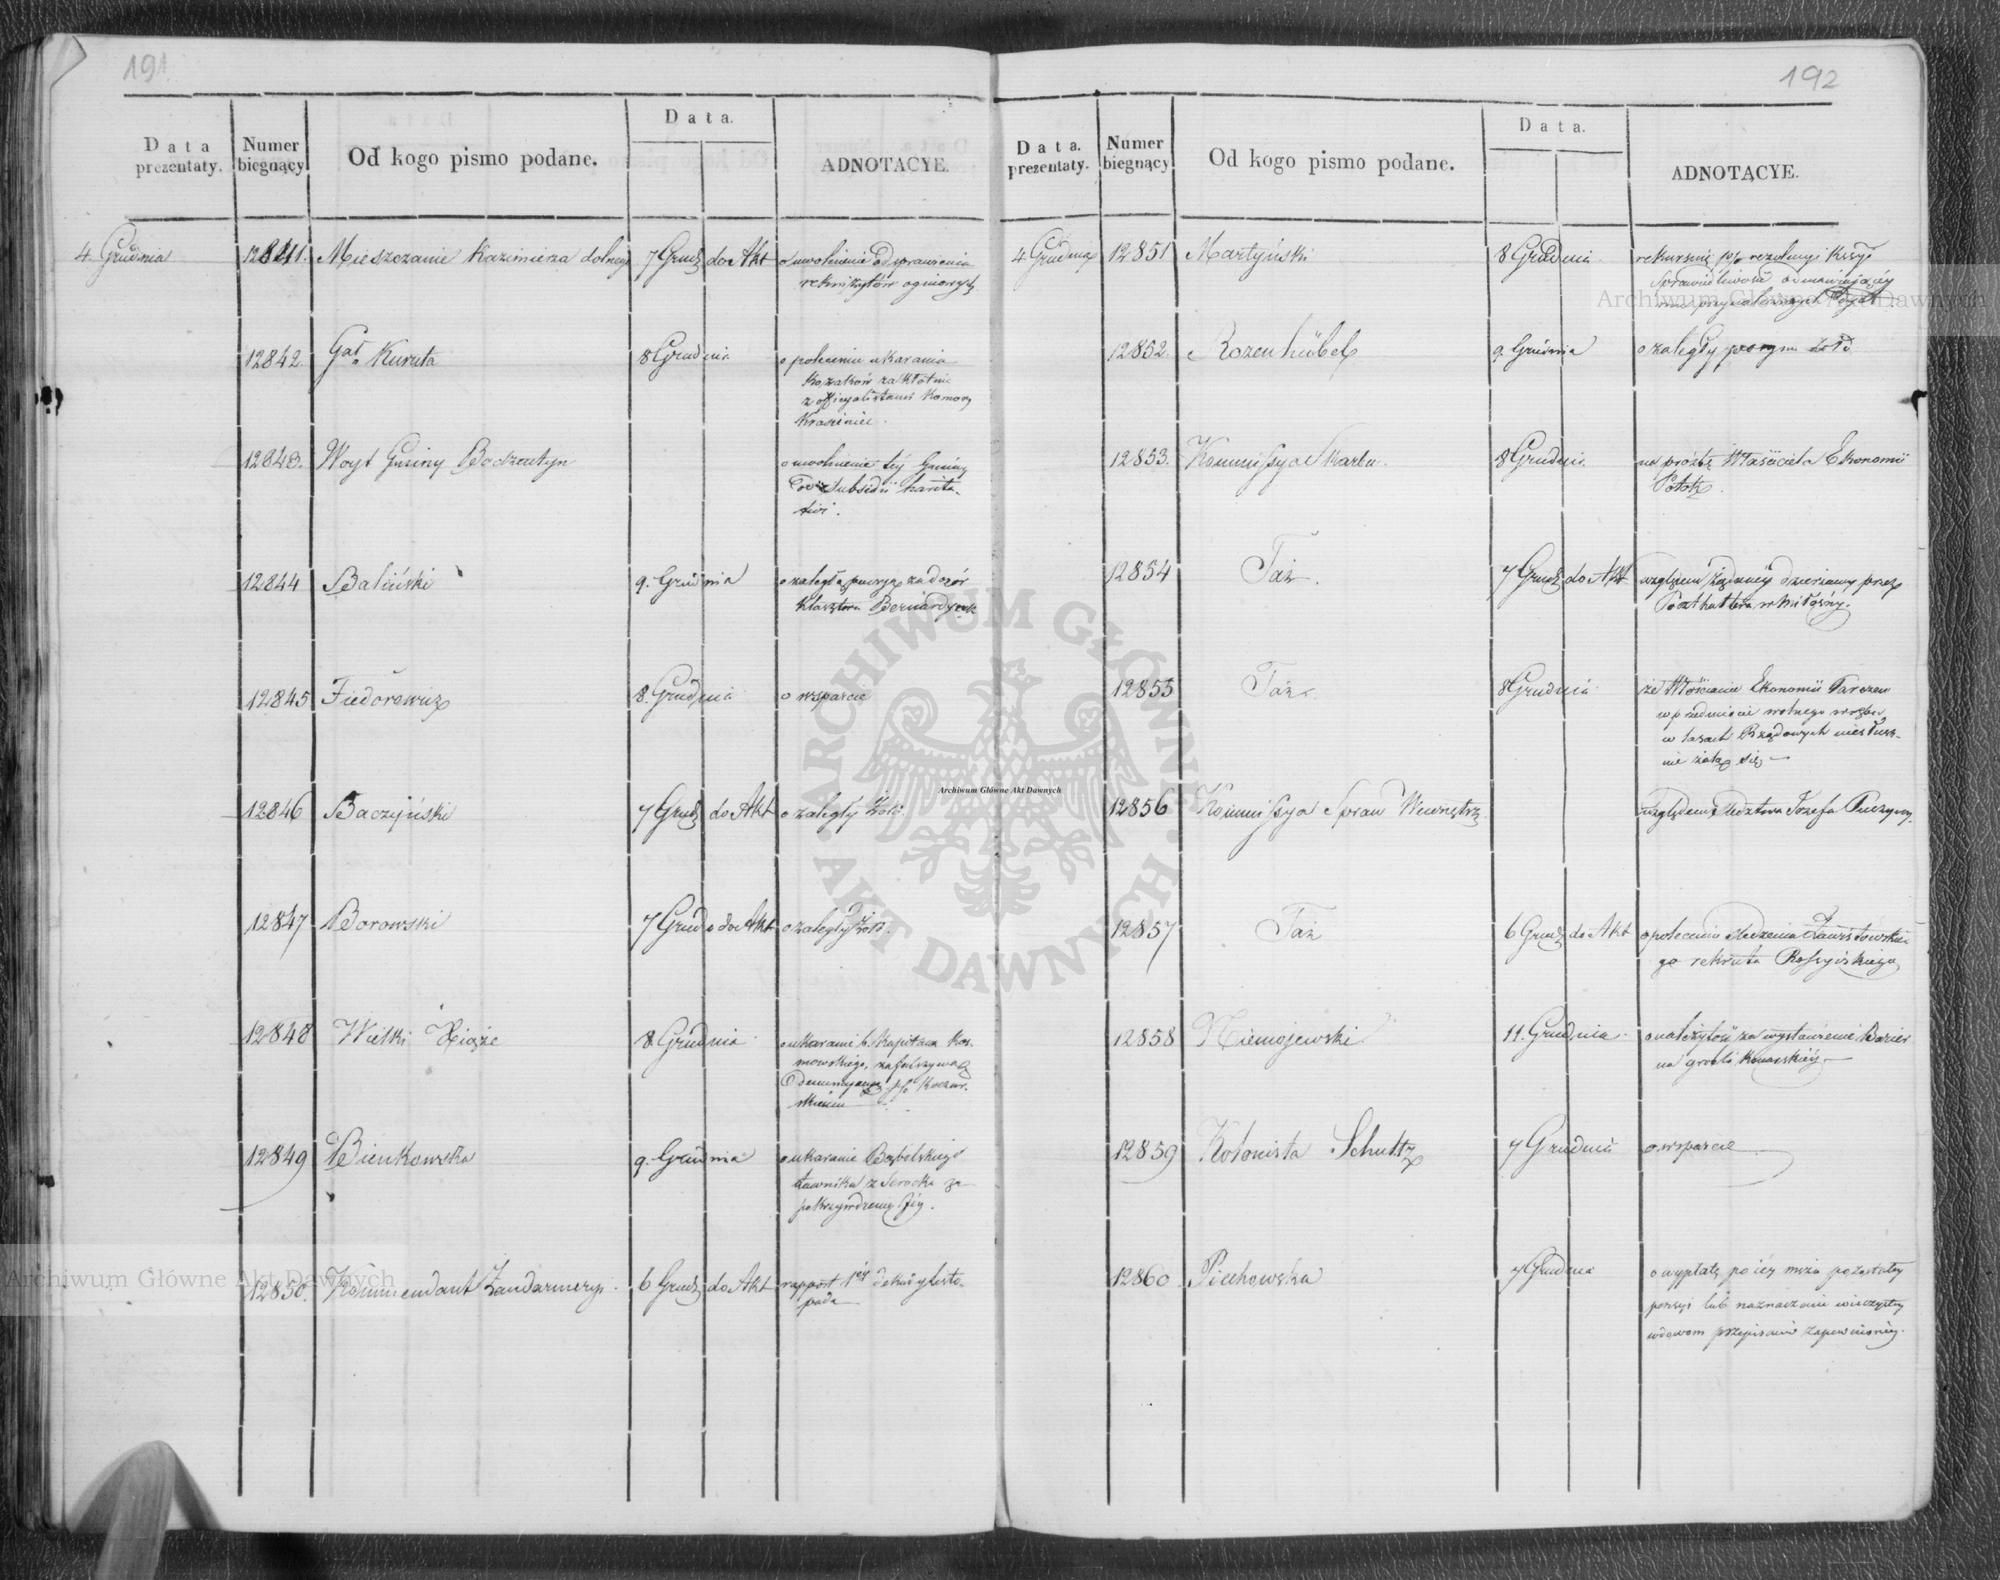 191
Data prezentaty.
Numer biegnący
Od kogo pismo podane.
Data.
ADNOTACYE.
4. Grudnia 12841. Mieszczanie Kazimierza dolnego 7 Grud do Akt o uwolnienie od sprawienia
rekwizytów ogniowych
12842. Gał Kuruta 8 Grudnia o polecenie ukarania
Kozaków za kłótnie
z officyalistami Komory
12843. Woyt Gminy Bodzentyn o uwolnienie tey Gminy
od Subsidii harita-
tivi.
12844 Baliński 9. Grudnia o zaległą pensyę za dozór
Klasztoru Bernardynek
12845 Fiedorowicz 8. Grudnia o wsparcie
12846 Baczyński 7 Grud do Akt o zaległy Żołd.
12847 Borowski 7 Grud do Akt o zaległy żołd.
12848 Wielki Xiąże 8 Grudnia o ukaranie b. Kapitana Kos-
mowskiego, za fałszywą
Denuncyacyą
12849 Bienkowska 9. Grudnia o ukaranie
Ławnika z Serocka za
pokrzywdzenie Jéy.
12850. Kommendant Żandarmeryi. 6 Grud do Akt rapport 1éy dekady listo-
pada
192
Data. prezentaty.
Numer biegnący
Od kogo pismo podane.
Data.
ADNOTACYE.
4 Grudnia 12851 Martyński 8 Grudnia
Sprawiedliwości odmawiaiącéy
12852. Rozenhübel 9. Grudnia o zaległy żołd
12853. Kommissya Skarbu. 8 Grudnia na prośbę Właściciela Ekonomii
12854 Taż. 7 Grud do Akt względem żądanéy dzierżawy przez
Poczthaltera w Miłosny.
12855 Taż. 8 Grudnia że Włościanie Ekonomii Tarczew
w przedmiocie wolnego wrębu
w lasach Rządowych niesłusz-
nie żalą się
12856 Kommissya Spraw Wewnętrz. względem Śledztwa Józefa
12857 Taż 6 Grud do Akt o polecenie śledzenia
go rekruta Rossyiskiego
12858 Niemojewski 11. Grudnia o należytość za wystawienie Barier
na grobli
12859 Kolonista Schultz 7 Grudnia o wsparcie
12860. Piechowska 7 Grudnia o wypłatę po iéy mężu pozostałéy
pensyi lub naznaczenie
wdowom przepisami zapewnionéy.
Archiwum Główne Akt Dawnych
Archiwum Główne Akt Dawnych
Archiwum Główne Akt Dawnych
ARCHIWUM GŁÓWNE AKT DAWNYCH